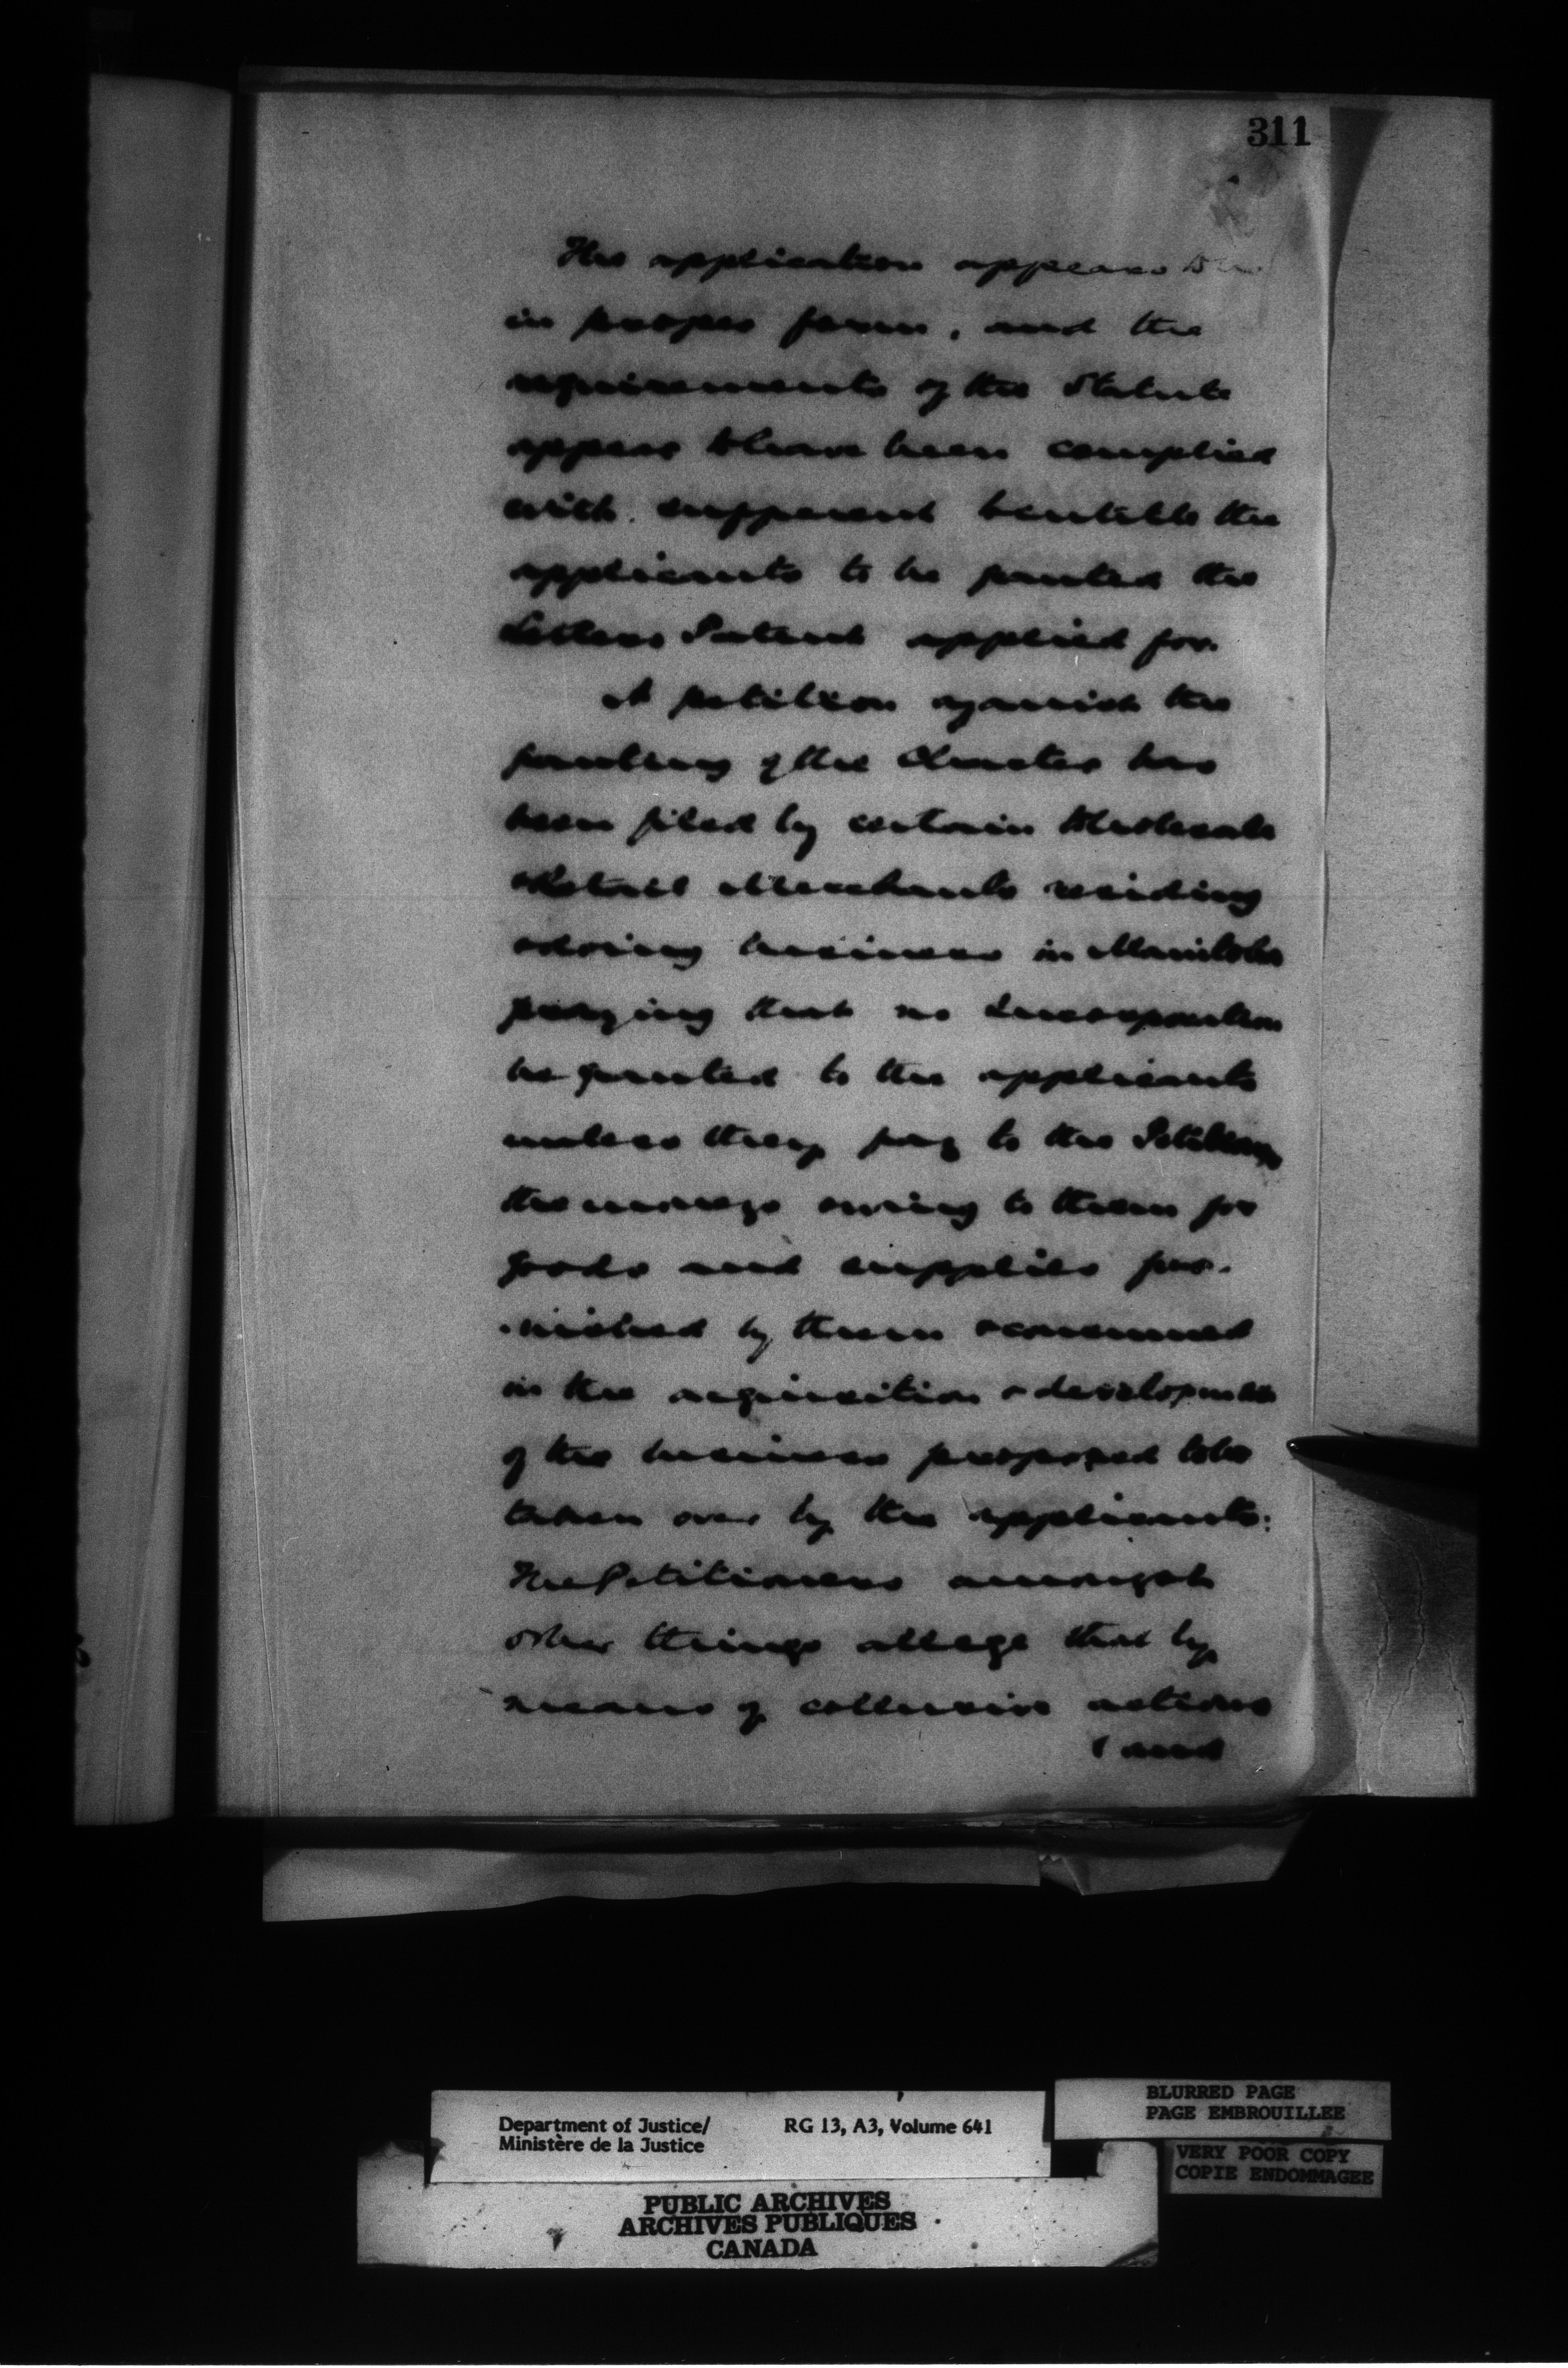 311
The application appears to be
in proper form, and the
requirements of the Statute
appear to have been complied
with sufficient to entitle the
applicants to be granted the
Letters Patent applied for.
A petition against the
granting of the Charter has
been filed by certain Wholesale
& Retail Merchants residing
& doing business in Manitoba
praying that no Incorporation
be granted to the applicants
unless they pay to the Petitioners
the moneys owing to them for
goods and supplies fur-
-nished by them & consumed
in the acquisition & development
of the business proposed to be
taken over by the applicants:
The Petitioners amongst
other things allege that by
means of collusive actions
(and
Department of Justice/
Ministère de la Justice
RG 13, A3, Volume 641
BLURRED PAGE
PAGE EMBROUILLEE
VERY POOR COPY
COPIE ENDOMMAGEE
PUBLIC ARCHIVES
ARCHIVES PUBLIQUES
CANADA